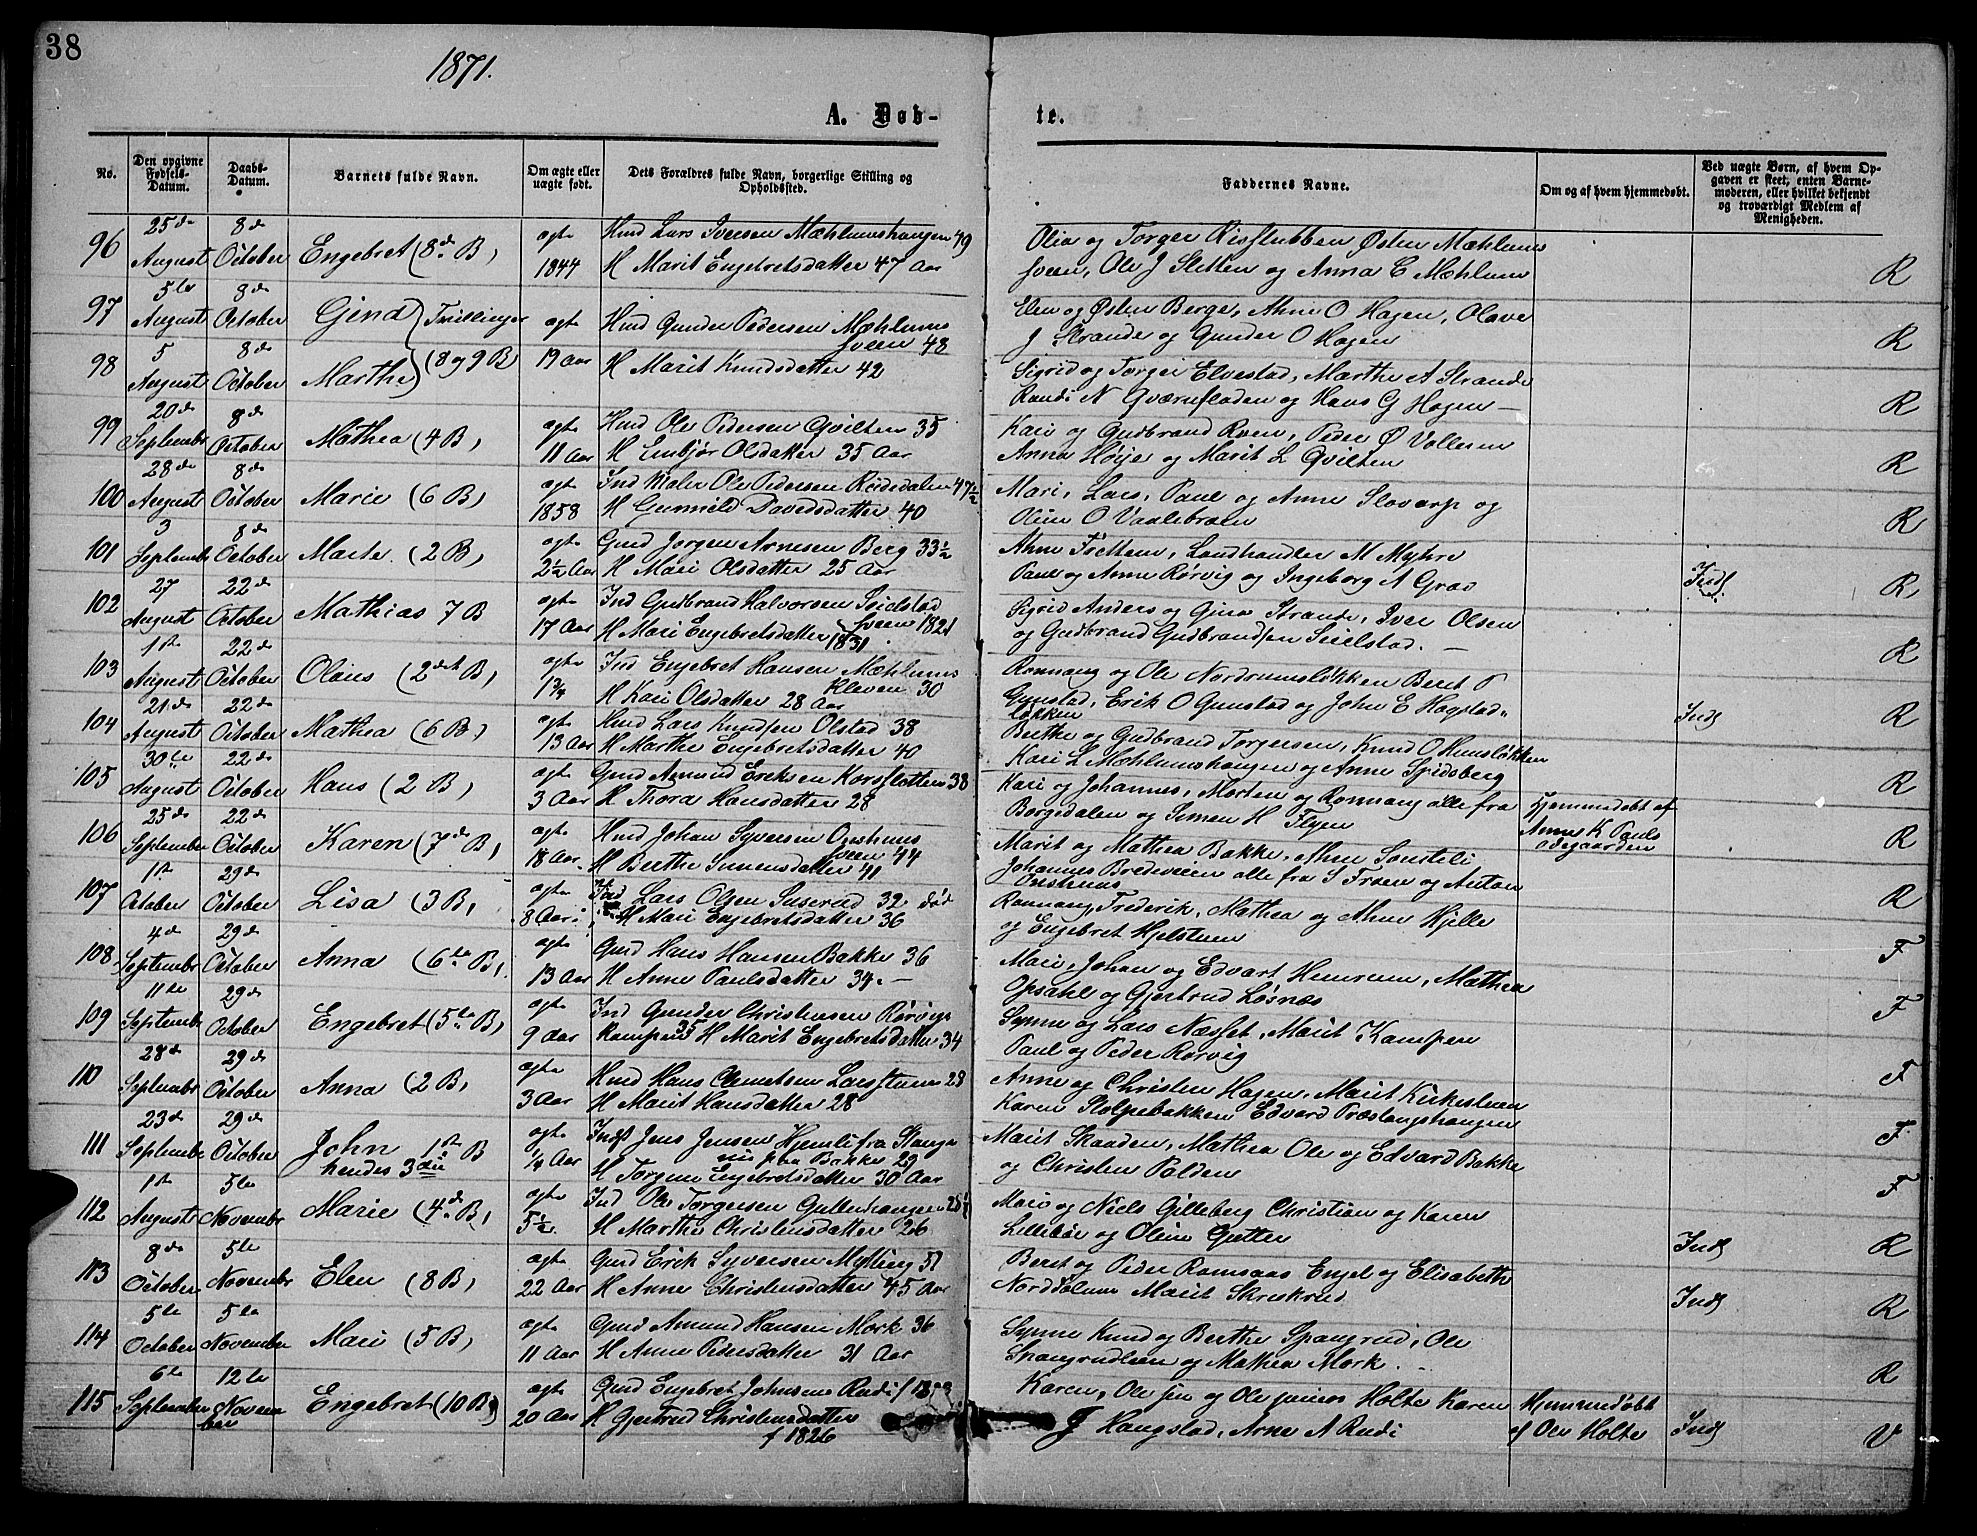 38
1871.
A. Døb-
te.
No.
Den opgivne Fødsels-Datum.
Daabs-Datum.
Barnets fulde Navn.
Om ægte eller uægte født.
Dets Forældres fulde Navn, borgerlige Stilling og Opholdssted.
Faddernes Navne.
Om og af hvem hjemmedøbt.
Ved uægte Børn, af hvem Opgaven er skeet, enten Barnemoderen, eller hvilket bekjendt og troværdigt Medlem af Menigheden.
96 25de August 8de October Engebret (8de B) ægte 1844
Hmd Lars Iversen Mæhlumshaugen 49
H Marit Engebretsdatter 47 Aar
Olia og Torger Risstubben Østen Mæhlums
sveen, Ole J Sletten og Anna C Mæhlum
R
97 5te August 8de October Gina Tvillinger ægte
Hmd Gunder Pedersen Mæhlums
sveen 48
Elen og Østen Berge, Ahne O Hagen, Olave
J Strande og Gunder O Hagen
R
98 5 August 8de October Marthe (8 og 9 B) 19 Aar
H Marit Knudsdatter 42
Sigrid og Torger Elvestad, Marthe A Strande
Randi N Qværnfladen og Hans G Hagen
R
99 20de Septembr 8de October Mathea (4 B) ægte 11 Aar
Hmd Ole Pedersen Qvilten 35
H Embjør Olsdatter 35 Aar
Kari og Gudbrand Roen, Peder Ø Volleren
Anne Høije og Marit L Qvilten
R
100 28de August 8de October Marie (6 B) ægte 1858
Ind Maler Ole Pedersen Rødedalen 47½
H Gunnild Davidsdatter 40
Mari, Lars, Paul og Anne Slovarp og
Oline O Vaalebroen
R
101 3 Septembr 8de October Marte (2 B) ægte 2½ Aar
Gmd Jørgen Arnesen Berg 33½
H Mari Olsdatter 25 Aar
Ahne Tøftem, Landhandler M Myhre
Paul og Anne Rørvig og Ingeborg A Graa
Inds
R
102 27 August 22de October Mathias 7 B ægte 17 Aar
Ind Gudbrand Halvorsen Seielstad
sveen 1821
H Mari Engebretsdatter 1831
Sigrid Anders og Gina Strande, Iver Olsen
og Gudbrand Gudbrandsen Seielstad.
R
103 1ste August 22de October Olaus (2det B) ægte 1¾
Ind Engebret Hansen Mæhlums
Kleven 30
H Kari Olsdatter 28 Aar
Ronnaug og Ole Nordrumsløkken Beret P
Gunstad, Erik O Gunstad og John E Hagstad
løkken
Inds
R
104 21de August 22de October Mathea (6 B) ægte 13 Aar
Hmd Lars Knudsen Olstad 38
H Marthe Engebretsdatter 40
Berthe og Gudbrand Torgersen, Knud O Hunsløkken
Kari L Mæhlumshaugen og Anne Spidsberg
R
105 30te August 22de October Hans (2 B) ægte 3 Aar
Gmd Amund Eriksen Korsflotten 38
H Thora Hansdatter 28
Kari og Johannes, Morten og Ronnaug alle fra
Borgedalen og Simen H Flyen
Hjemmedøbt af
Anne K Pauls
ødegaarden
R
106 25de September 22de October Karen (7de B) ægte 18 Aar
Hmd Johan Syversen Onshuus
sveen 44
H Berthe Simensdatter 41
Marit og Mathea Bakke, Ahne Sonsteli
Johannes Bredeveien alle fra S Froen og Anton
R
107 1ste October 29de October Lisa (3 B) ægte 8 Aar
Ind Lars Olsen Suserud 32 død
H Mari Engebretsdatter 36
Ronnaug, Frederik, Mathea og Ahne Hjelle
og Engebret Hjelstuen
F
108 4de Septembr 29de October Anna (6te B) ægte 13 Aar
Gmd Hans Hansen Bakke 36
H Anne Paulsdatter 34.
Mari, Johan og Edvart Hemrum, Mathea
Opsahl og Gjertrud Løsnæs
F
109 11te Septembr 29de October Engebret (5te B) ægte 9 Aar
Ind Gunder Christensen Rørvigs
kampen 35 H Marit Engebretsdatter 34
Synne og Lars Næsset, Marit Kampen
Paul og Peder Rørvig
F
110 28de Septembr 29de October Anna (2 B) ægte 3 Aar
Hmd Hans Clemetsen Larsstuen 28
H Marit Hansdatter 28
Anne og Christen Hagen, Marit Kirkestuen
Karen Stolpebakken Edvard Præstangshaugen
F
111 23de Septembr 29de October John 1ste B
hendes 3die ægte ¼ Aar
Indst Jens Jensen Hjemli fra Stange
nu paa Bakke 29
H Torgine Engebretsdatter 30 Aar
Marit Skaaden, Mathea Ole og Edvard Bakke
og Christen Paldem
F
112 1ste August 5te Novembr Marie (4de B) ægte 5½
Ind Ole Torgersen Gullenhaugen 28½
H Marthe Christensdatter 26
Mari og Niels Gilleberg Christian og Karen
Lillebøe og Oline Gutter
Inds
R
113 8de October 5te Novembr Elen (8 B) ægte 22 Aar
Gmd Erik Syversen Myking 51
H Anne Christensdatter 45 Aar
Beret og Peder Ramsaas Engel og Elisabeth
Marit Skrukrud
Inds
R
114 5te October 5te November Mari (5 B) ægte 11 Aar
Gmd Amund Hansen Mork 36
H Anne Pedersdatter 31 Aar
Synne Knud og Berthe Spangrud, Ole
Spangrudlien og Mathea Mork.
R
115 6te September 12te November Engebret (10 B) ægte 20 Aar
Gmd Engebret Johnsen Rudi f
H Gjertrud Christensdatter
f 1826
Karen, Ole sen og Ole junior Holte Karen
J Haugstad, Arne A Rudi
Hjemmedøbt
af Ole Holte
Inds
V